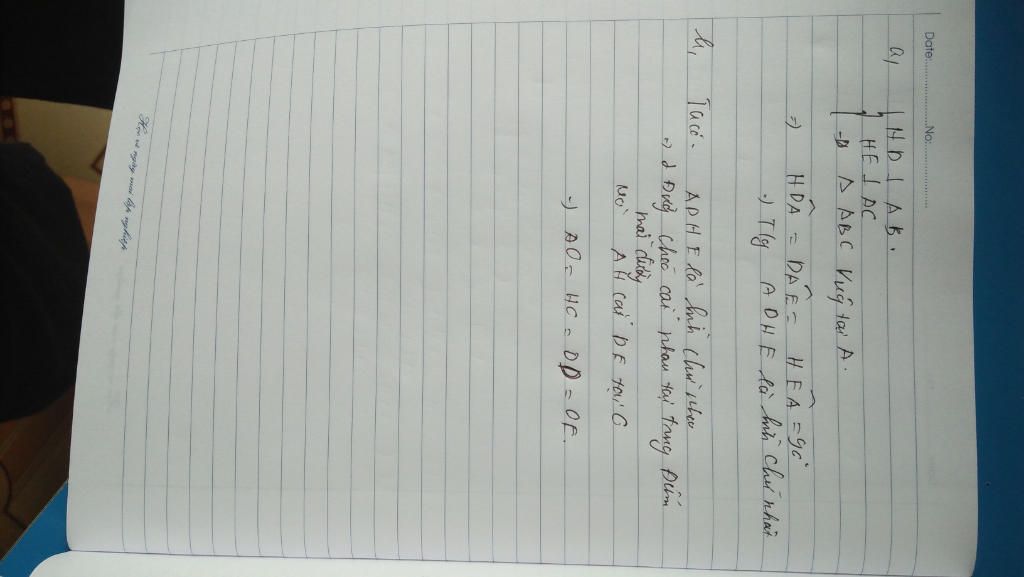 Date: No:
a, HD ⊥ AB.
HE ⊥ AC
Δ ABC vug tại A.
=> HDA = DAE = HEA = 90°
=> T/g ADHE là hình chữ nhật
b, Ta có. ADHE là hình chữ nhật
=> 2 Đường chéo cắt nhau tại trung Điểm
mỗi đường
Mà AH cắt DE tại O
=> AO = HO = OD = OE.
Học vì ngày mai lập nghiệp